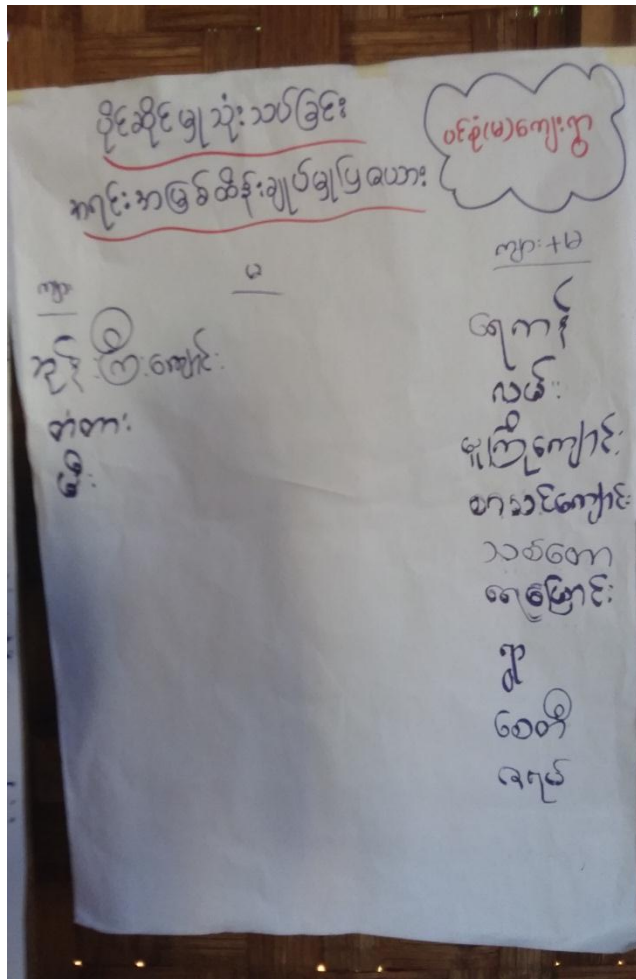 ပိုင်ဆိုင်မှုသုံးသပ်ခြင်း
အရင်းအမြစ်ထိန်းချုပ်မှုပြဇယား
ဝင်စုံ(မ)ကျေးရွာ
ကျား
ဘုန်းကြီးကျောင်း
တံတား
မီး
မ
ကျား+မ
ရေကန်
လမ်း
မူကြိုကျောင်း
စာသင်ကျောင်း
သစ်တော
ရေမြောင်း
ရွာ
စေတီ
ဇရပ်